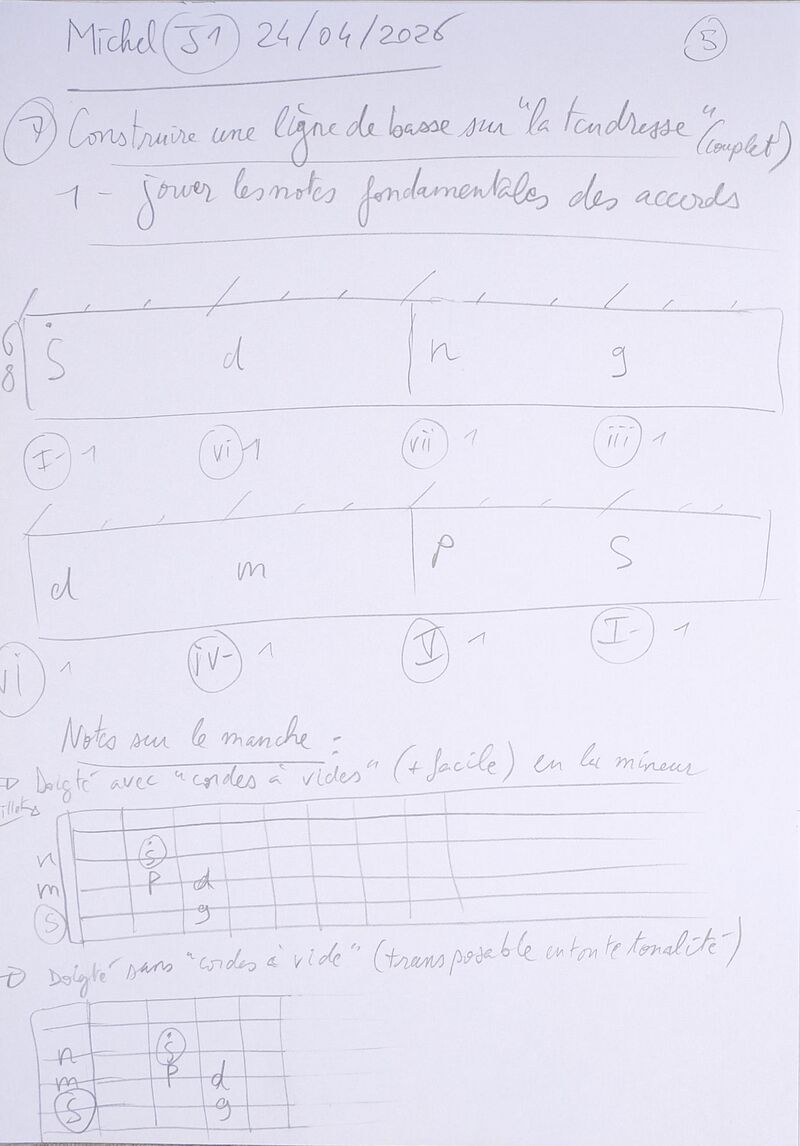 Michel S1 24/04/2026 5
7 Construire une ligne de basse sur "la tendresse" (couplet)
1 - jouer les notes fondamentales des accords
6
8
Ṡ d n g
I- 1 vi 1 vii 1 iii 1
d m P S
vi 1 iv- 1 V 1 I- 1
Notes sur le manche :
Doigté avec "cordes à vides" (+ facile) en la mineur
n ṡ
m P d
S g
Doigté sans "cordes à vide" (transposable en toute tonalité)
n ṡ
m P d
S g